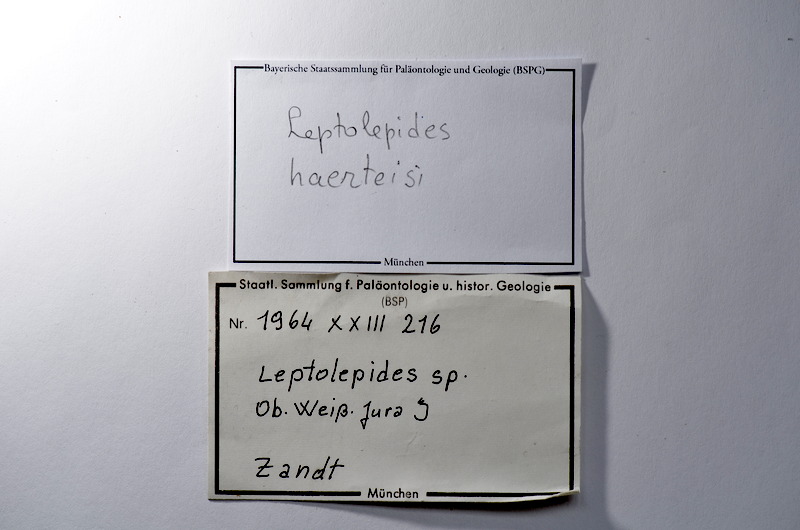 Bayerische Staatssammlung für Paläontologie und Geologie (BSPG)
Leptolepides
haerteisi
München
Staatl. Sammlung f. Paläontologie u. histor. Geologie
(BSP)
Nr. 1964 XXIII 216
Leptolepides sp.
Ob. Weiß. Jura ζ
Zandt
München